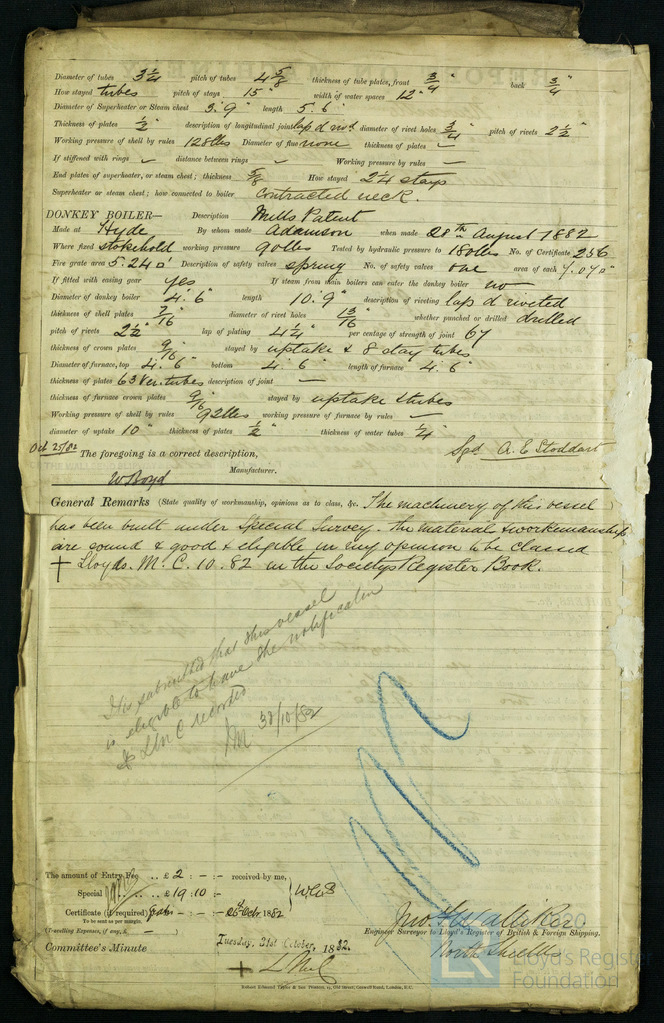 Diameter of tubes 3 1/4 pitch of tubes 4 5/8 thickness of tube plates, front 3/4" back 3/4"
How stayed tubes pitch of stays 15" width of water spaces 12"
Diameter of Superheater or Steam chest 3' 9" length 5' 6"
Thickness of plates 1/2" description of longitudinal joint lap d rivd diameter of rivet holes 3/4" pitch of rivets 2 1/2"
Working pressure of shell by rules 128 lbs Diameter of flue none thickness of plates —
If stiffened with rings — distance between rings — Working pressure by rules —
End plates of superheater, or steam chest; thickness 5/8" How stayed 2 1/4 stays
Superheater or steam chest; how connected to boiler contracted neck.
DONKEY BOILER— Description Mills Patent
Made at Hyde By whom made Adamson when made 28th August 1882
Where fixed stokehold working pressure 90 lbs Tested by hydraulic pressure to 180 lbs No. of Certificate 256
Fire grate area 5.24 □' Description of safety valves spring No. of safety valves one area of each 7.070"
If fitted with easing gear yes If steam from main boilers can enter the donkey boiler no
Diameter of donkey boiler 4' 6" length 10' 9" description of riveting lap d riveted
thickness of shell plates 7/16 diameter of rivet holes 13/16" whether punched or drilled drilled
pitch of rivets 2 1/2" lap of plating 4 1/4" per centage of strength of joint 67
thickness of crown plates 9/16" stayed by uptake & 8 stay tubes
Diameter of furnace, top 4' 6" bottom 4' 6" length of furnace 4' 6"
thickness of plates 63 Ver. tubes description of joint —
thickness of furnace crown plates 9/16" stayed by uptake & tubes
Working pressure of shell by rules 92 lbs working pressure of furnace by rules —
diameter of uptake 10" thickness of plates 1/2" thickness of water tubes 1/4"
Oct 25/82 The foregoing is a correct description, Sgd A. E. Stoddart
W Boyd Manufacturer.
General Remarks (State quality of workmanship, opinions as to class, &c. The machinery of this vessel
has been built under Special Survey. The material & workmanship
are sound & good & eligible in my opinion to be classed
+ Lloyds. M. C. 10. 82 in the Societys Register Book.
It is submitted that this vessel
is eligible to have the notification
+ LMC recorded
JM 30/10/82
The amount of Entry Fee .. £ 2 : - : - received by me,
Special .. £ 19 : 10 : -
Certificate (if required) - : - 26th Octr. 1882
To be sent as per margin.
(Travelling Expenses, if any, £ )
Committee's Minute Tuesday, 31st October, 1882.
+ LMC
Engineer Surveyor to Lloyd's Register of British & Foreign Shipping.
North Shields
Robert Edmund Taylor & Son Printers, 19, Old Street, Goswell Road, London, E.C.
Lloyd's Register
Foundation